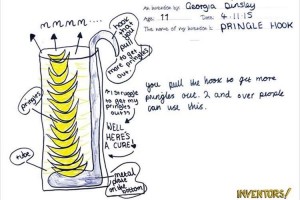 M M M M....
hook
that
you
pull
to get
more
pringles
out.
pringles
I struggle
to get my
pringles
out!!
WELL
HERE'S
A CURE!
tube
metal
plate
on the
bottom
An invention by: Georgia Dinsley
Age: 11 Date: 4.11.15
The name of my invention is: PRINGLE HOOK
you pull the hook to get more
pringles out. I and over people
can use this.
INVENTORS!